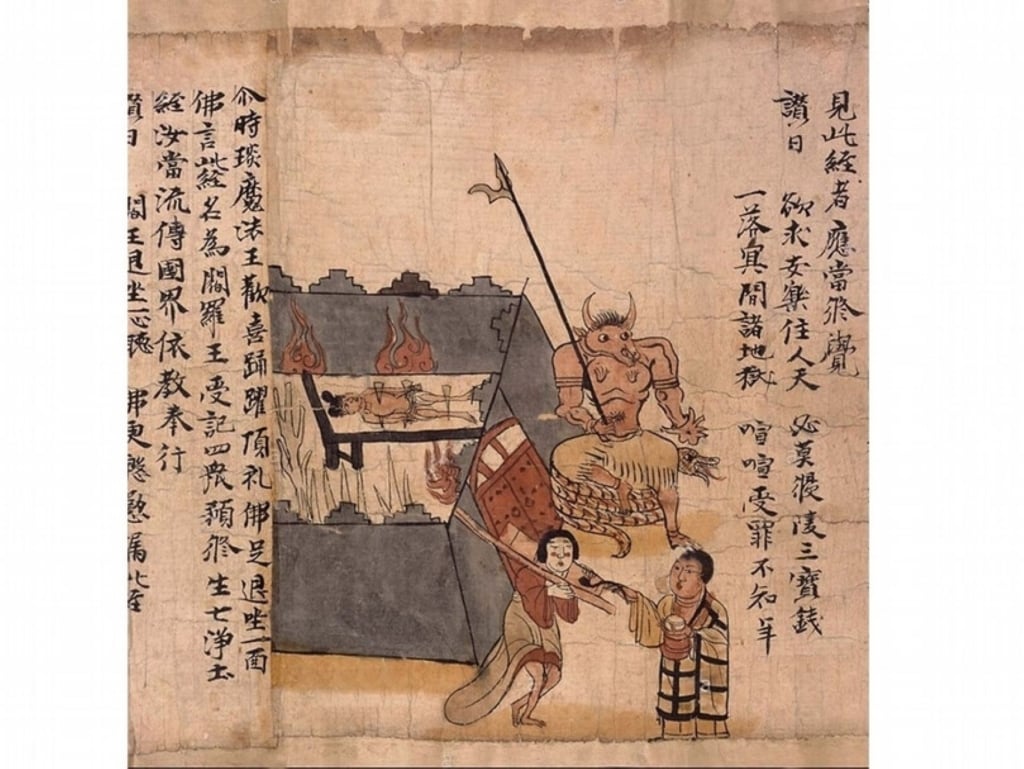 見此經者應當修覺
讚曰　欲求安樂住人天　必莫侵陵三寶錢
一落冥間諸地獄　喧喧受罪不知年
尒時琰魔法王歡喜踊躍頂礼佛足退坐一面
佛言此經名為閻羅王受記四眾預修生七淨土
經汝當流傳國界依教奉行
讚曰　閻王退坐一心聽　佛更慇懃囑此經